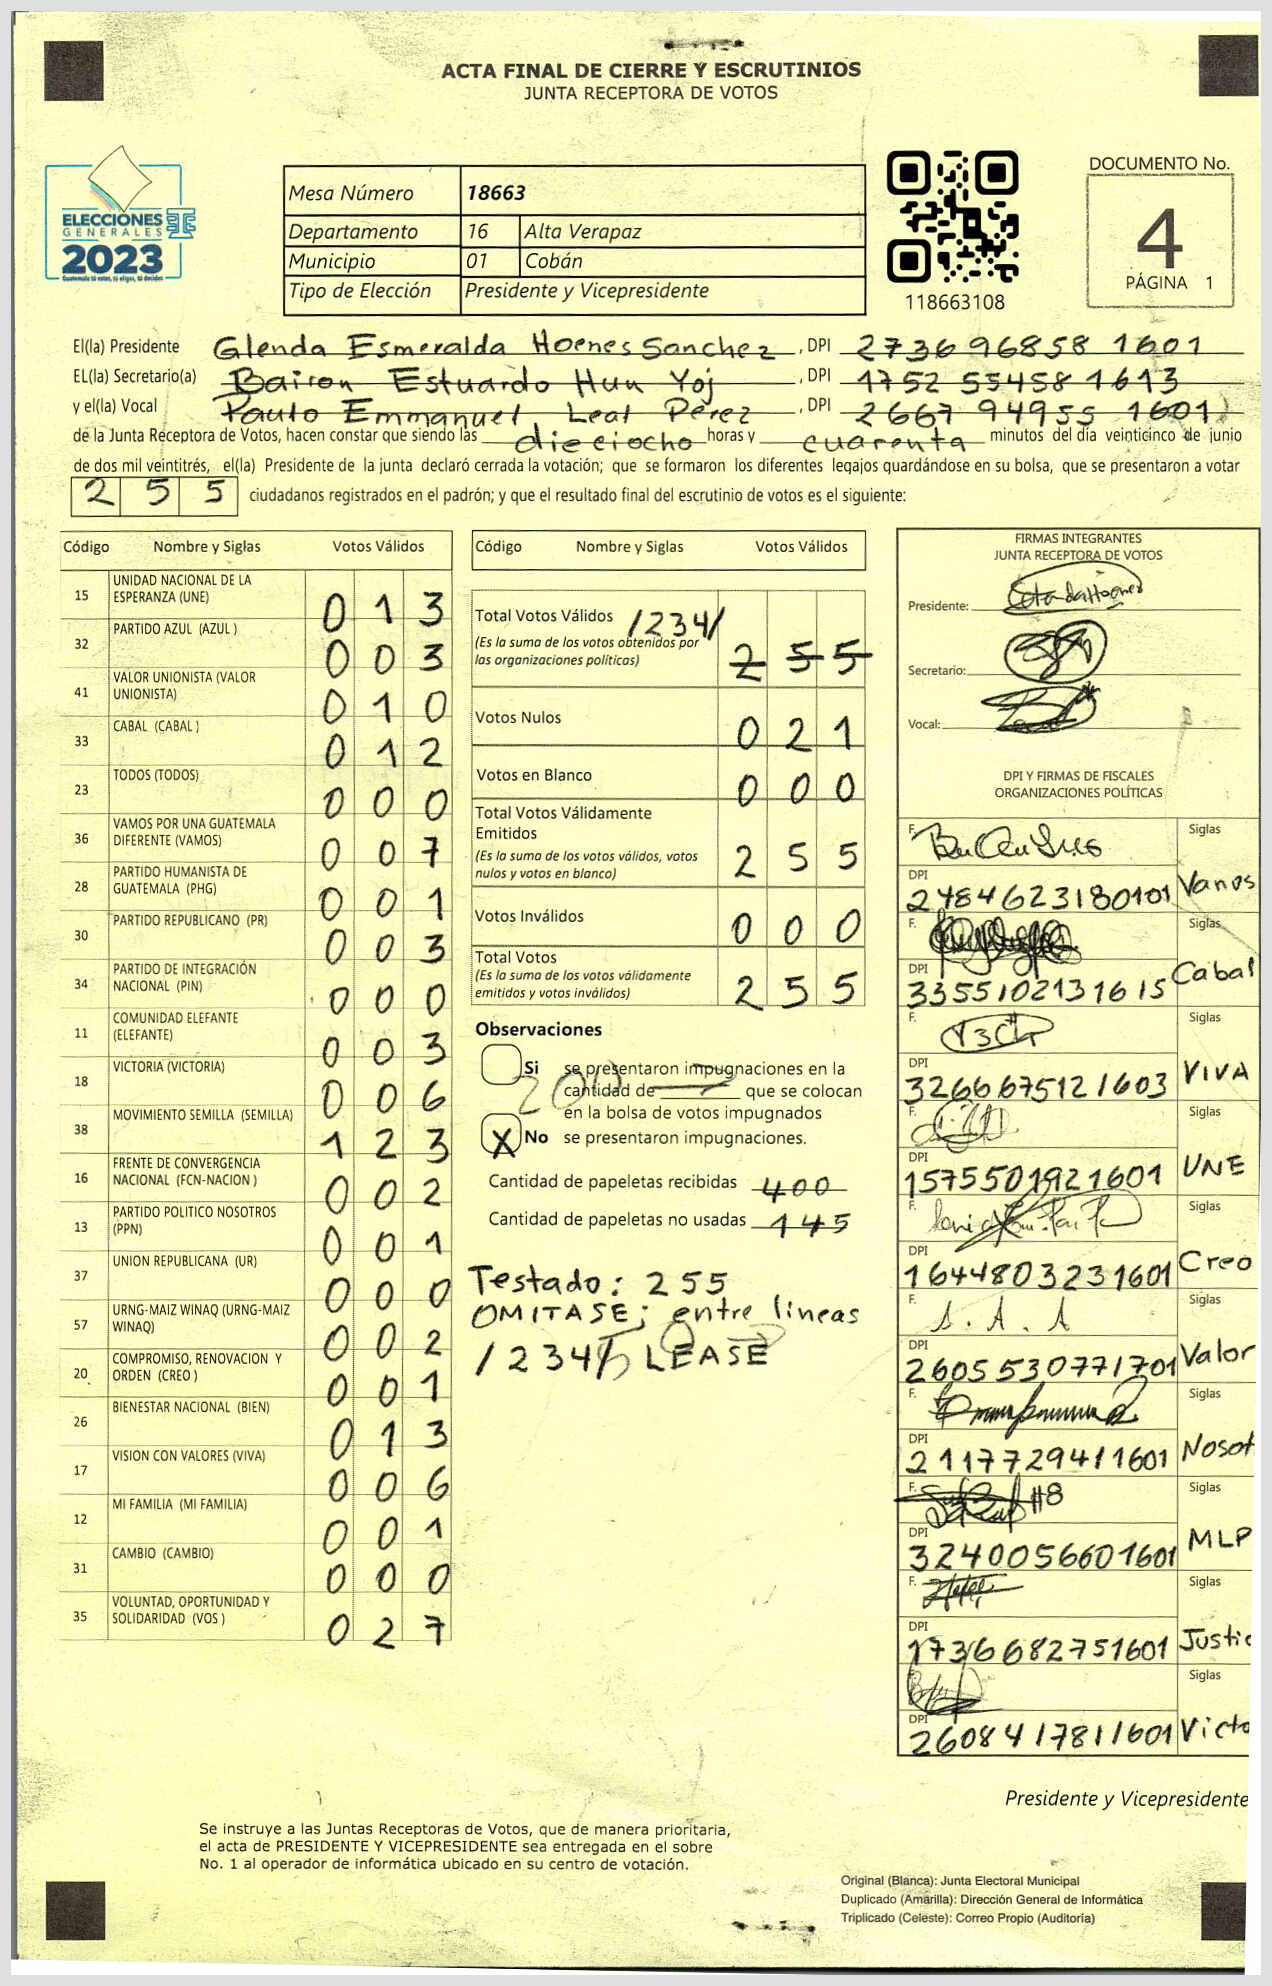 ACTA FINAL DE CIERRE Y ESCRUTINIOS
JUNTA RECEPTORA DE VOTOS
ELECCIONES
GENERALES
2023
Guatemala tú votas, tú eliges, tú decides
Mesa Número 18663
Departamento 16 Alta Verapaz
Municipio 01 Cobán
Tipo de Elección Presidente y Vicepresidente
118663108
DOCUMENTO No.
4
PÁGINA 1
El(la) Presidente Glenda Esmeralda Hoenes Sanchez , DPI 2736 96858 1601
EL(la) Secretario(a) Bairon Estuardo Hun Yoj , DPI 1752 55458 1613
y el(la) Vocal Paulo Emmanuel Leal Pérez , DPI 2667 94955 1601
de la Junta Receptora de Votos, hacen constar que siendo las dieciocho horas y cuarenta minutos del día veinticinco de junio
de dos mil veintitrés, el(la) Presidente de la junta declaró cerrada la votación; que se formaron los diferentes legajos guardándose en su bolsa, que se presentaron a votar
255 ciudadanos registrados en el padrón; y que el resultado final del escrutinio de votos es el siguiente:
Código Nombre y Siglas Votos Válidos
15 UNIDAD NACIONAL DE LA ESPERANZA (UNE) 013
32 PARTIDO AZUL (AZUL ) 003
41 VALOR UNIONISTA (VALOR UNIONISTA) 010
33 CABAL (CABAL ) 012
23 TODOS (TODOS) 000
36 VAMOS POR UNA GUATEMALA DIFERENTE (VAMOS) 007
28 PARTIDO HUMANISTA DE GUATEMALA (PHG) 001
30 PARTIDO REPUBLICANO (PR) 003
34 PARTIDO DE INTEGRACIÓN NACIONAL (PIN) 000
11 COMUNIDAD ELEFANTE (ELEFANTE) 003
18 VICTORIA (VICTORIA) 006
38 MOVIMIENTO SEMILLA (SEMILLA) 123
16 FRENTE DE CONVERGENCIA NACIONAL (FCN-NACION ) 002
13 PARTIDO POLITICO NOSOTROS (PPN) 001
37 UNION REPUBLICANA (UR) 000
57 URNG-MAIZ WINAQ (URNG-MAIZ WINAQ) 002
20 COMPROMISO, RENOVACION Y ORDEN (CREO ) 001
26 BIENESTAR NACIONAL (BIEN) 013
17 VISION CON VALORES (VIVA) 006
12 MI FAMILIA (MI FAMILIA) 001
31 CAMBIO (CAMBIO) 000
35 VOLUNTAD, OPORTUNIDAD Y SOLIDARIDAD (VOS ) 027
Código Nombre y Siglas Votos Válidos
Total Votos Válidos /234/
(Es la suma de los votos obtenidos por
las organizaciones políticas) 255
Votos Nulos 021
Votos en Blanco 000
Total Votos Válidamente
Emitidos
(Es la suma de los votos válidos, votos
nulos y votos en blanco) 255
Votos Inválidos 000
Total Votos
(Es la suma de los votos válidamente
emitidos y votos inválidos) 255
Observaciones
Si se presentaron impugnaciones en la
cantidad de que se colocan
en la bolsa de votos impugnados
X No se presentaron impugnaciones.
Cantidad de papeletas recibidas 400
Cantidad de papeletas no usadas 145
Testado: 255
OMITASE; entre lineas
/234/ LEASE
FIRMAS INTEGRANTES
JUNTA RECEPTORA DE VOTOS
Presidente:
Secretario:
Vocal:
DPI Y FIRMAS DE FISCALES
ORGANIZACIONES POLÍTICAS
F. Siglas
DPI 2484623180101 Vamos
F. Siglas
DPI 3355102131615 Cabal
F. Siglas
DPI 3266675121603 VIVA
F. Siglas
DPI 1575501921601 UNE
F. Siglas
DPI 1644803231601 Creo
F. S. A. A Siglas
DPI 2605530771701 Valor
F. Siglas
DPI 2117729411601 Nosot
F. #8 Siglas
DPI 3240056601601 MLP
F. Siglas
DPI 1736682751601 Justic
Siglas
DPI 2608417811601 Victo
Presidente y Vicepresidente
Se instruye a las Juntas Receptoras de Votos, que de manera prioritaria,
el acta de PRESIDENTE Y VICEPRESIDENTE sea entregada en el sobre
No. 1 al operador de informática ubicado en su centro de votación.
Original (Blanca): Junta Electoral Municipal
Duplicado (Amarilla): Dirección General de Informática
Triplicado (Celeste): Correo Propio (Auditoría)